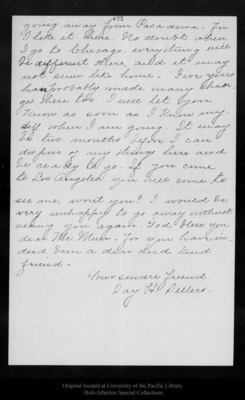 473
going away from Pasadena. For
I like it here. No doubt when
I go to Chicago, everything will
be different there, and it may
not seem like home. Two years
has probably made many chan
ges there too. I will let you
know as soon as I know my-
self when I am going. It may
be two months before I can
dispose of my things here and
be ready to go. If you come
to Los Angeles, you will come to
see me, won't you? I would be
very unhappy to go away without
seeing you again. God bless you
dear Mr. Muir. For you have in-
deed been a dear and kind
friend.
Your sincere friend
Fay H. Sellers.
Original located at University of the Pacific Library
Holt-Atherton Special Collections